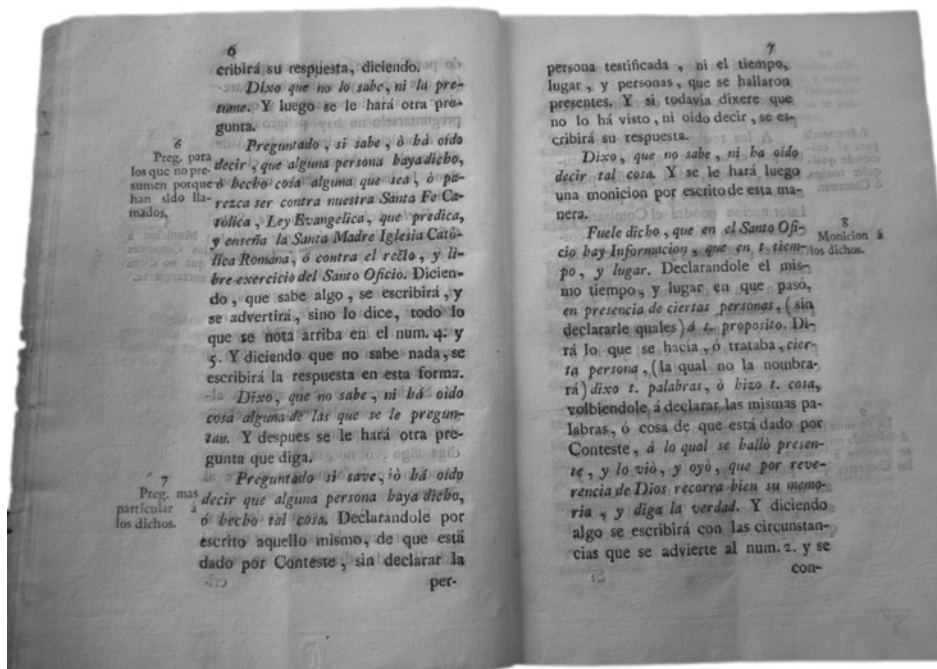 6
cribirá su respuesta, diciendo.
Dixo que no lo sabe, ni la pre-
sume. Y luego se le hará otra pre-
gunta.
6
Preg. para
los que no pre-
sumen porque
han sido lla-
mados.
Preguntado, si sabe, ò há oído
decir, que alguna persona haya dicho,
ò hecho cosa alguna que sea, ò pa-
rezca ser contra nuestra Santa Fe Ca-
tòlica, Ley Evangelica, que predica,
y enseña la Santa Madre Iglesia Catò-
lica Romana, ó contra el recto, y li-
bre exercicio del Santo Oficio. Dicien-
do, que sabe algo, se escribirá, y
se advertirá, sino lo dice, todo lo
que se nota arriba en el num. 4. y
5. Y diciendo que no sabe nada, se
escribirá la respuesta en esta forma.
Dixo, que no sabe, ni há oìdo
cosa alguna de las que se le pregun-
tan. Y despues se le hará otra pre-
gunta que diga.
7
Preg. mas
particular á
los dichos.
Preguntado si save, ò há oído
decir que alguna persona haya dicho,
ó hecho tal cosa. Declarandole por
escrito aquello mismo, de que está
dado por Conteste, sin declarar la
per-
7
persona testificada, ni el tiempo,
lugar, y personas, que se hallaron
presentes. Y si todavía dixere que
no lo há visto, ni oído decir, se es-
cribirá su respuesta.
Dixo, que no sabe, ni ha oído
decir tal cosa. Y se le hará luego
una monicion por escrito de esta ma-
nera.
8
Monicion á
los dichos.
Fuele dicho, que en el Santo Ofi-
cio hay Informacion, que en t. tiem-
po, y lugar. Declarandole el mis-
mo tiempo, y lugar en que pasó,
en presencia de ciertas personas, (sin
declararle quales) á t. proposito. Di-
rá lo que se hacía, ó trataba, cier-
ta persona, (la qual no la nombra-
rá) dixo t. palabras, ò hizo t. cosa,
volbiendole á declarar las mismas pa-
labras, ó cosa de que está dado por
Conteste, à lo qual se hallò presen-
te, y lo viò, y oyò, que por reve-
rencia de Dios recorra bien su memo-
ria, y diga la verdad. Y diciendo
algo se escribirá con las circunstan-
cias que se advierte al num. 2. y se
con-